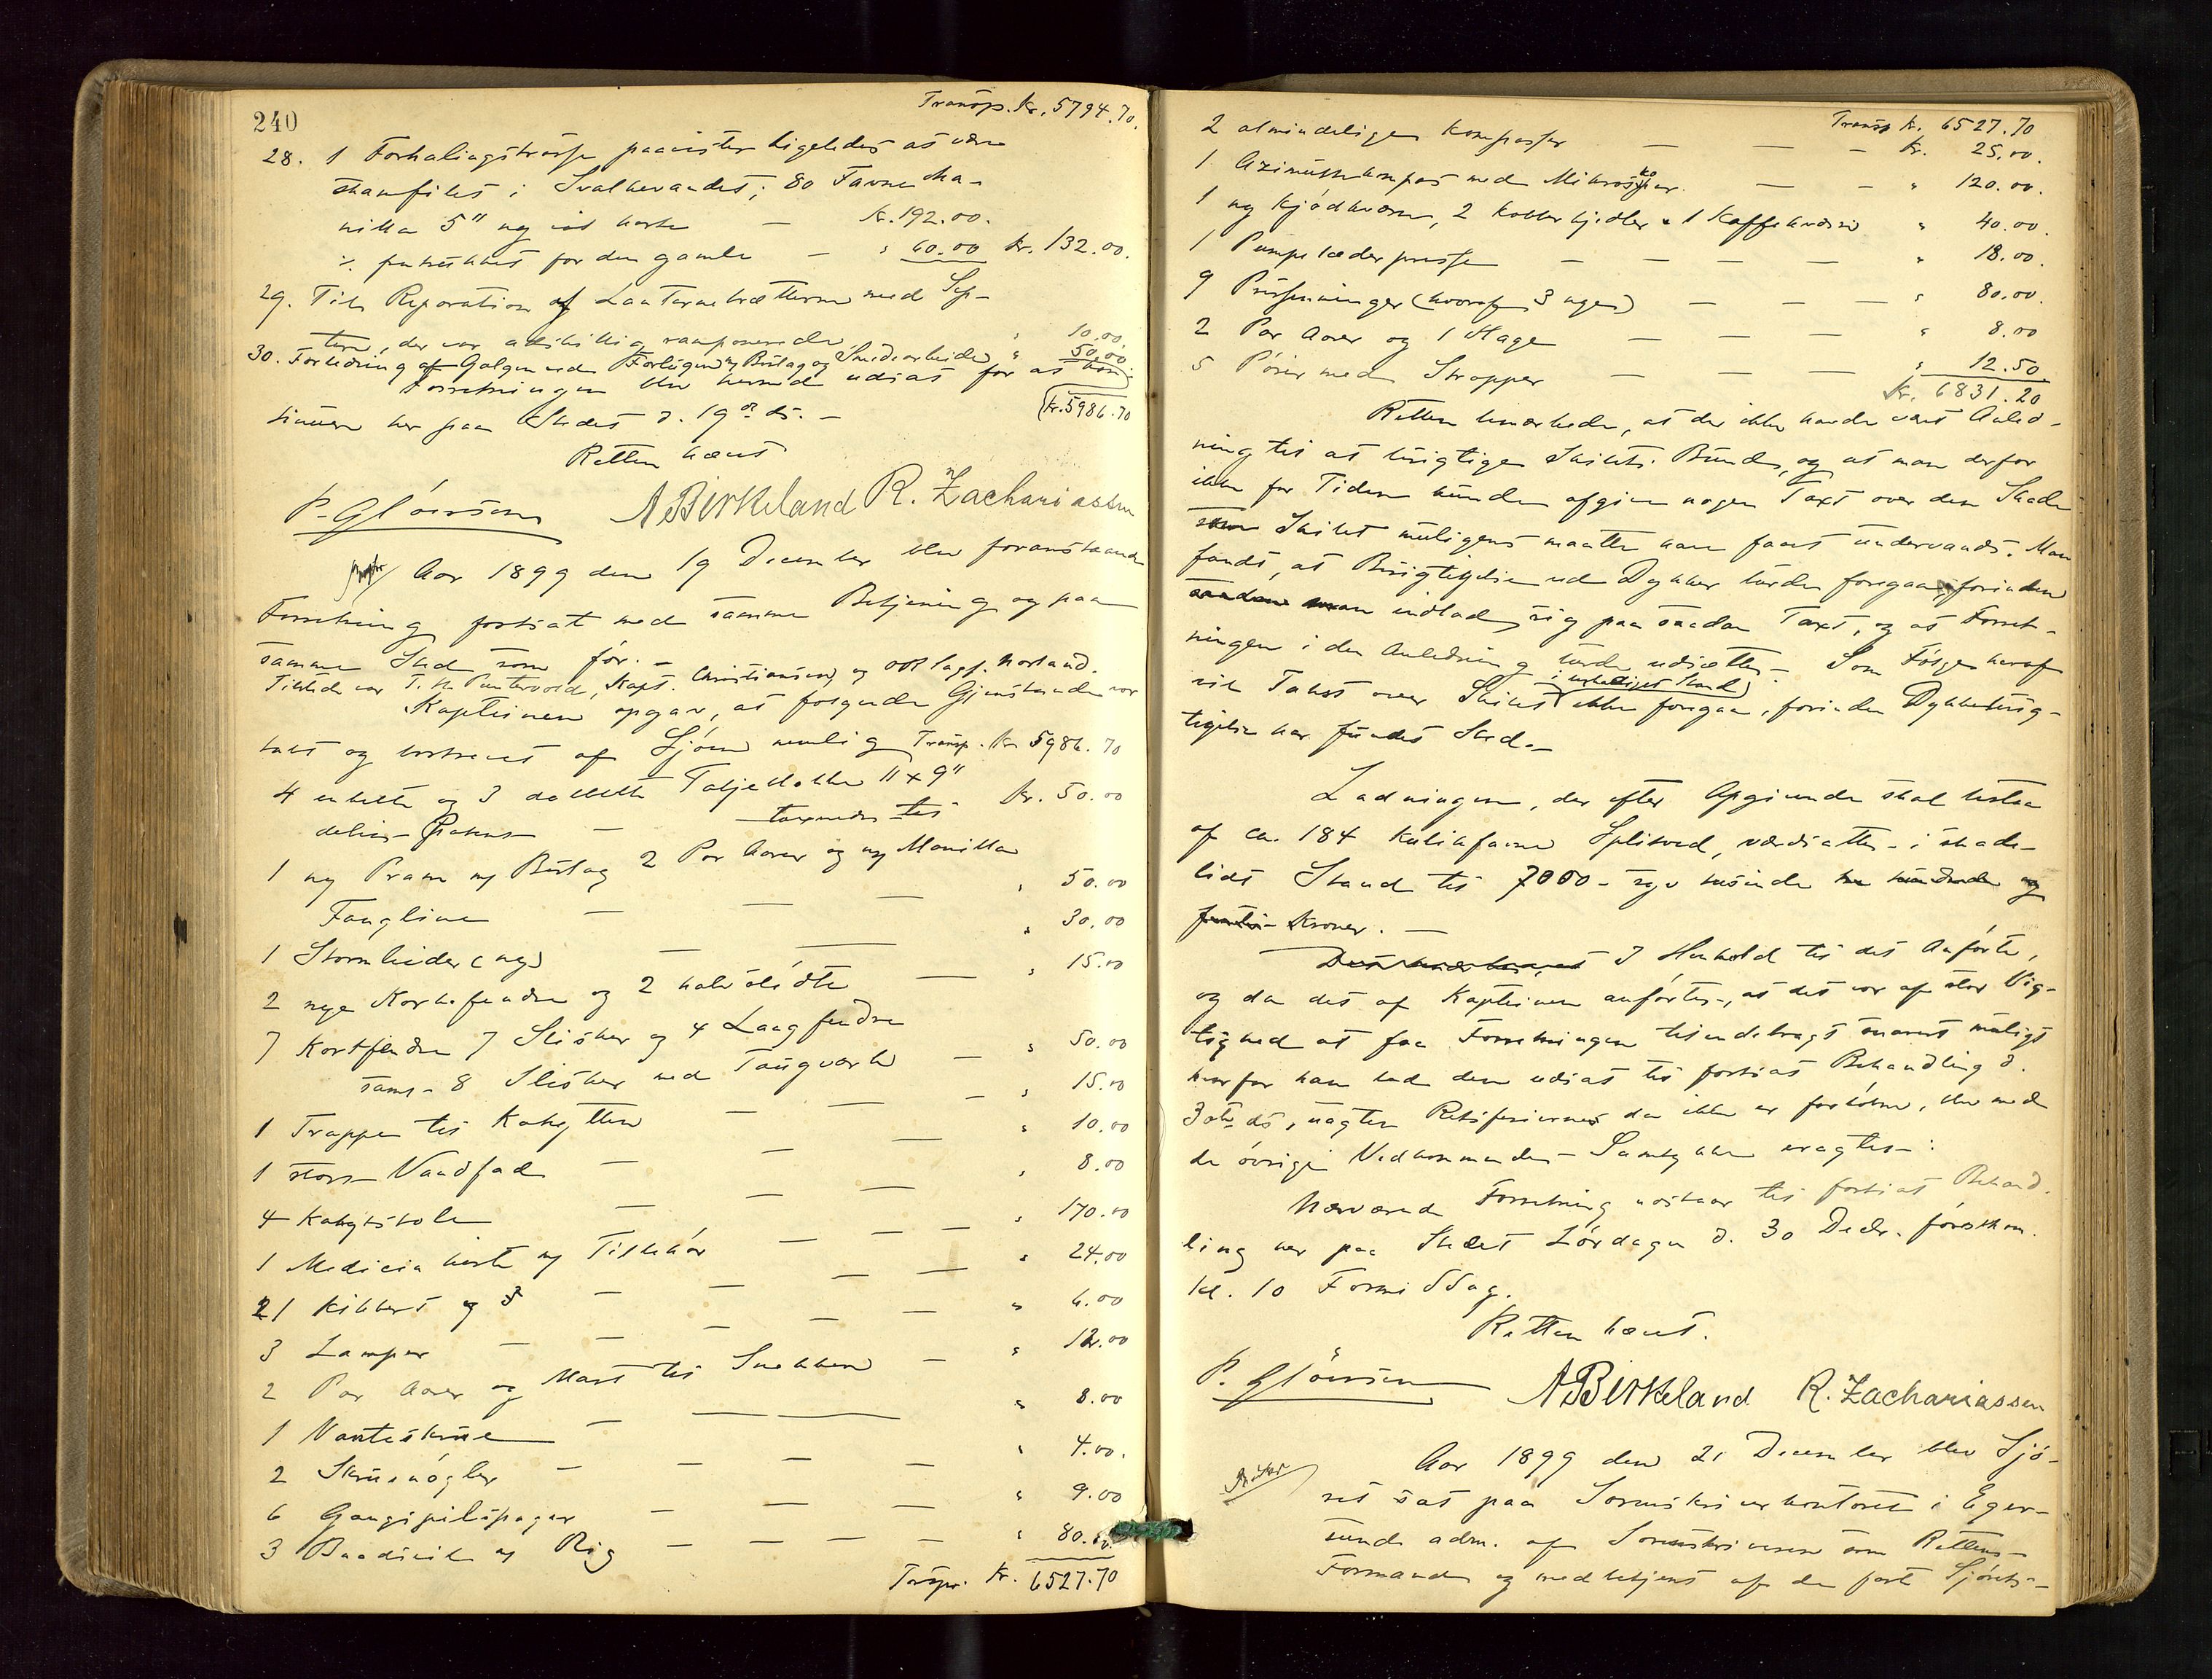 240
Transp. Kr. 5794.70.
28. 1 Forhalingstrosse paavistes ligeledes at være
skamfilet i Svalhevandet; 80 Favne Ma-
nilla 5" ny — Kr. 192.00.
÷ for den gamle — " 60.00 Kr. 132.00.
29. Til Reparation af Lanternebrætterne med
der var ramponerede " 10.00.
30. Forhudring af Galgen med Forhugning Beslag og Smedearbeide " 50.00
Kr. 5986.70
Forretningen blev hermed udsat for at kon-
tinuere her paa Stedet d. 19de ds. —
Retten hævet
P. Gløersen A Birkeland R. Zachariassen
Aar 1899 den 19 December blev foranstaaende
Forretning fortsat med samme Betjening og paa
samme Sted som før. —
Tilstede var Kapt. Christiansen og Norland.
Kapteinen opgav, at følgende Gjenstande var
tabt og bortrevet af Sjøen nemlig Transp. Kr 5986.70
4 enkelte og 3 dobbelte Taljeblokke 11 x 9"
Kr. 50.00
1 ny Pram m/ Beslag 2 Par Aarer og ny Manilla
Fangline — — — " 50.00
1 Stormleider (ny) — — " 30.00
2 nye Korkefendre og 2 halvslidte — " 15.00
7 Kortfendre 7 Slisker og 4 Laagfendre
samt 8 Slisker med Taugværk — " 50.00
1 Trappe til Kahytten — — — " 15.00
1 stort Vandfad — — — " 10.00
4 Kahytstole — — — " 8.00
1 Medicinkiste m/ Tilbehør — — — " 170.00
21 Kikkert — — — " 24.00
3 Lamper — — — " 6.00
2 Par Aarer og Mast til Snekken — " 12.00
1 Vanteskrue — — " 8.00
2 Skruenøgler — — — " 4.00.
6 Gangspilspager — — — " 9.00
3 Baadseil m/ Rig — — — — " 80.00.
Transp. Kr. 6527.70
Transp Kr. 6527.70
2 almindelige Kompasser — — — Kr. 25.00.
1 Azimuthkompas med Mikroskoper. — — " 120.00.
1 ny Kjødkværn, 2 Kobberkjedler & 1 Kaffekværn " 40.00.
1 Pumpelæderpresse — — — — " 18.00.
9 Presenninger (hvoraf 3 nye) — — — " 80.00.
2 Par Aarer og 1 Hage — — — " 8.00
5 Pøser med Stropper — — — " 12.50
Kr. 6831.20
Retten bemærkede, at der ikke havde været Anled-
ning til at besigtige Skibets Bund, og at man derfor
ikke for Tiden kunde afgive nogen Taxt over den Skade
Skibet muligens maatte have faaet undervands. Man
fandt, at Besigtigelse ved Dykker burde foregaa, forinden
man indlod sig paa saadan Taxt, og at Forret-
ningen i den Anledning burde udsættes. Som Følge heraf
i ubeskadiget Stand
vil Takst over Skibet ikke foregaa, forinden Dykkerbesig-
tigelse har fundet Sted. —
Ladningen, der efter Opgivende skal bestaa
af ca. 184 Kubikfavne Splitved, værdsattes i skade-
lidt Stand til 7000 — syv tusinde
Kroner. —
I Henhold til det Anførte,
og da det af Kapteinen anførtes, at det var af stor Vig-
tighed at faa Forretningen tilendebragt snarest muligt
hvorfor han bad den udsat til fortsat Behandling d.
30te ds, uagtet Retsferierne da ikke er forløbne, blev med
de øvrige Vedkommendes Samtykke eragtet:
Nærværende Forretning udstaar til fortsat Behand-
ling her paa Stedet Lørdagen d. 30 Decbr. førstkom.
Kl. 10 Formiddag.
Retten hævet.
P. Gløersen A Birkeland R. Zachariassen
Aar 1899 den 21 December blev Sjø-
ret sat paa Sorenskriverkontoret i Eger-
sund adm. af Sorenskriveren som Rettens
Formand og medbetjent af de faste Sjørets-